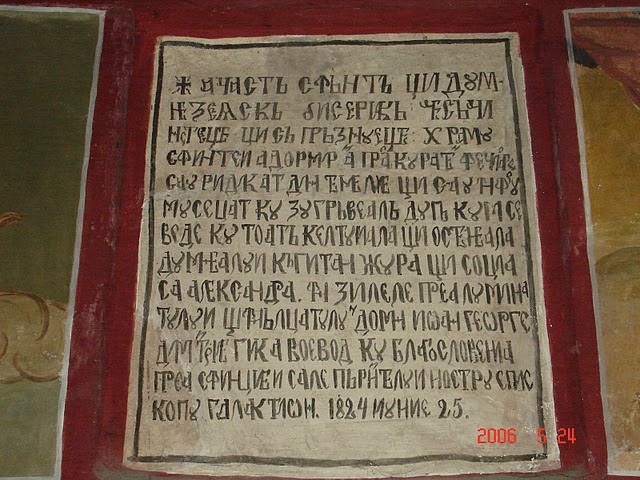 ✱ АЧАСТЬ СФЪНТЬ ШИ ДꙊМ-
НЕЗЕѦСКЪ БИСЕРІКЪ ЧЕСЪЧИ
НꙊЕЩЕ ШИ СЪ ПРЪЗНꙊЕЩЕ ХРАМꙊ
СФИНТЕИ АДОРМІРИ А ПРѣ КꙊРАТЕИ ФЕЧѠАРЕ
САꙊ РИДИКАТ ДИН ТЕМЕЛІЕ ШИ САꙊ ꙞНФРꙊ
МꙊСЕЦАТ КꙊ ЗꙊГРЪВЕАЛЬ ДꙊПЬ КꙊМ СЕ
ВЕДЕ КꙊ ТОАТЬ КЕЛТꙊИАЛА ШИ ОСТЪНѢАЛА
ДꙊМНѢАЛꙊИ КЪПИТАН ЖꙊРА ШИ СОЦІА
СА АЛЕѮАНДРА. ꙞН ЗИЛЕЛЕ ПРѢ ЛꙊМИНА
ТꙊЛꙊИ ШИ ꙞНЪЛЦАТꙊЛꙊИ ДОМН ИѠАН ГЕОРГЕ
ДИМИТРІЕ ГИКА ВОЕВОД КꙊ БЛАГОСЛОВЕНІА
ПРѢА СФИНЦІЕИ САЛЕ ПЪРИНТЕЛꙊИ НОСТРꙊ ЕПИС
КОПꙊ ГАЛАКТИѠН. 1824 ИꙊНИЕ 25.
2006 5 24